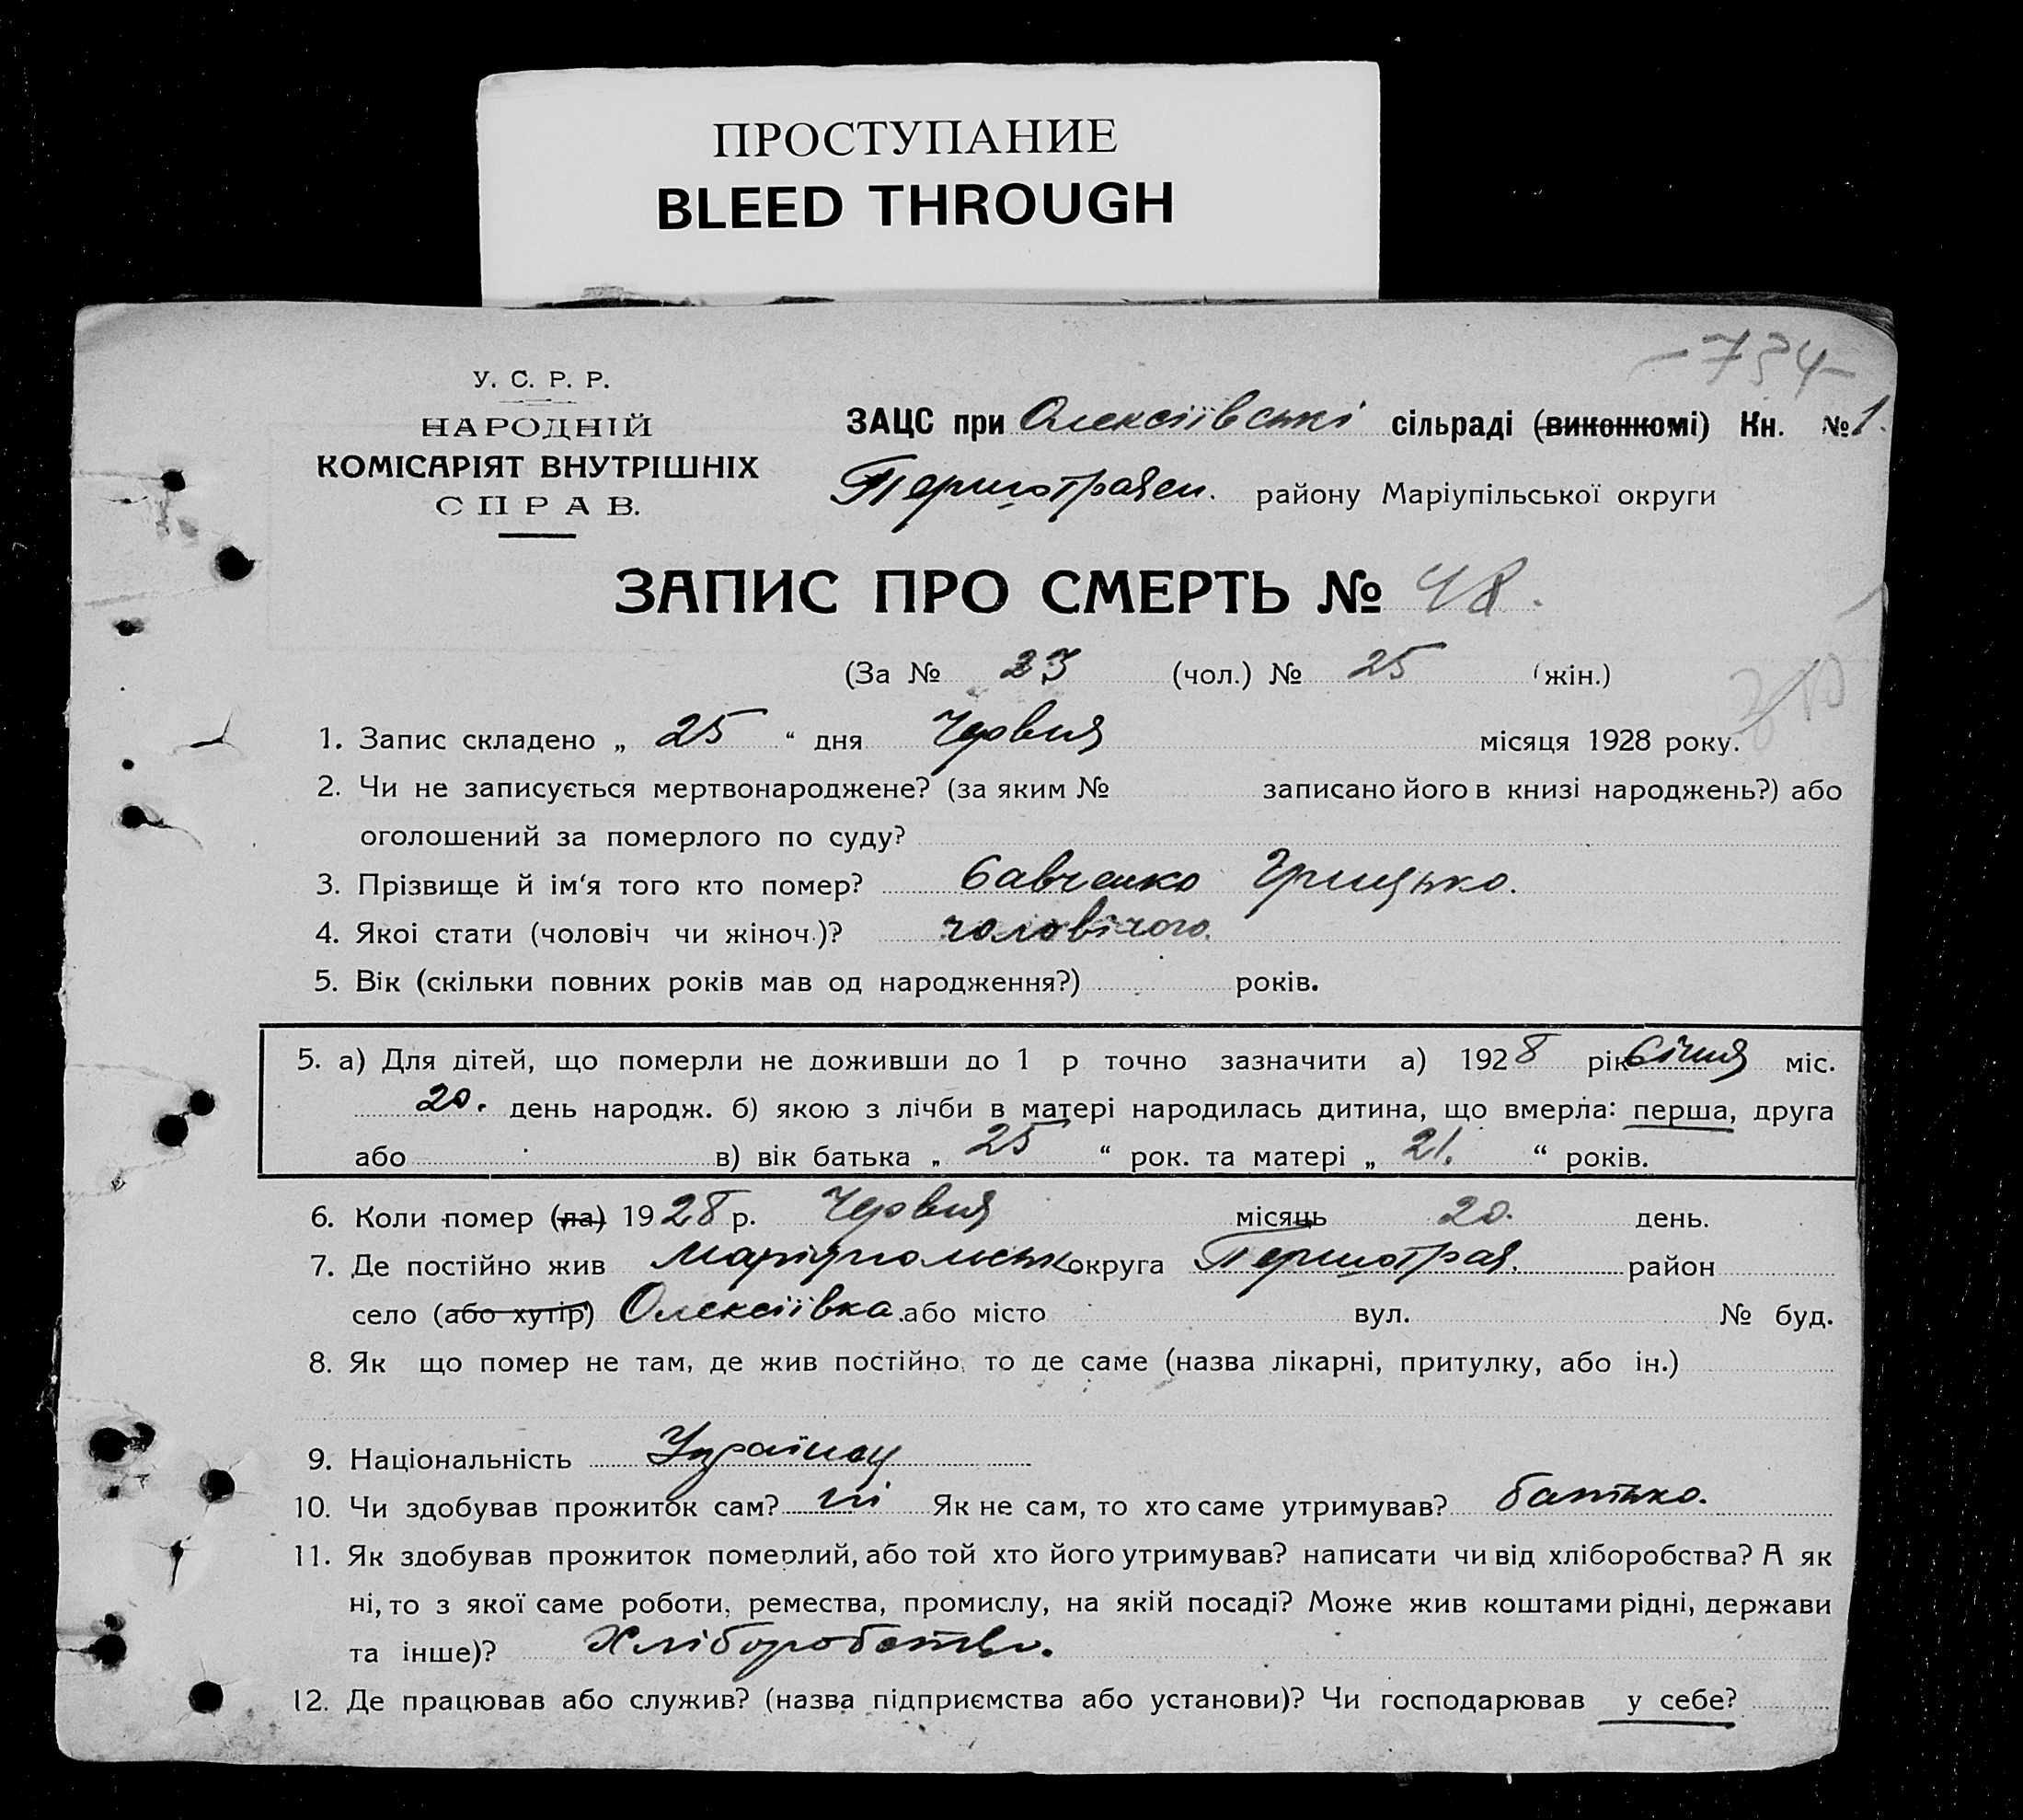 ПРОСТУПАНИЕ
BLEED THROUGH
-734-
У. С. Р. Р.
НАРОДНІЙ
КОМІСАРІЯТ ВНУТРІШНІХ
СПРАВ.
ЗАЦС при Олексіївські сільраді (виконкомі) Кн. № 1.
Першотравен. району Маріупільської округи
ЗАПИС ПРО СМЕРТЬ № 48.
(За № 23 (чол.) № 25 (жін.)
1. Запис складено „ 25 “ дня Червня місяця 1928 року.
2. Чи не записується мертвонароджене? (за яким № записано його в книзі народжень?) або
оголошений за померлого по суду?
3. Прізвище й ім‘я того кто помер? Савченко Грицько.
4. Якоі стати (чоловіч чи жіноч.)? чоловічого.
5. Вік (скільки повних років мав од народження?) років.
5. а) Для дітей, що померли не доживши до 1 р точно зазначити а) 1928 рік Січня міс.
20. день народж. б) якою з лічби в матері народилась дитина, що вмерла: перша, друга
або в) вік батька „ 25 “ рок. та матері „ 21. “ років.
6. Коли помер (ла) 1928 р. Червня місяць 20. день.
7. Де постійно жив Маріупольськ округа Першотрав. район
село (або хутір) Олексіївка. або місто вул. № буд.
8. Як що помер не там, де жив постійно, то де саме (назва лікарні, притулку, або ін.)
9. Національність Українец
10. Чи здобував прожиток сам? ні Як не сам, то хто саме утримував? батько.
11. Як здобував прожиток померлий, або той хто його утримував? написати чи від хліборобства? А як
ні, то з якої саме роботи, ремества, промислу, на якій посаді? Може жив коштами рідні, держави
та інше)? Хліборобство.
12. Де працював або служив? (назва підприємства або установи)? Чи господарював у себе?